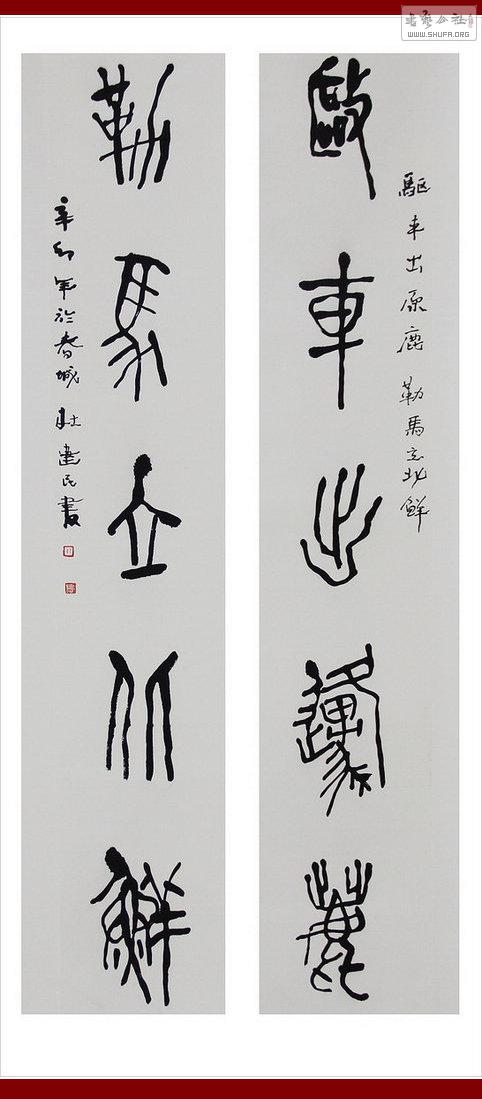 書藝公社
WWW.SHUFA.ORG
驅車出原鹿
驅車出原鹿 勒馬立北鮮
勒馬立北鮮
辛卯年於春城杜建民書